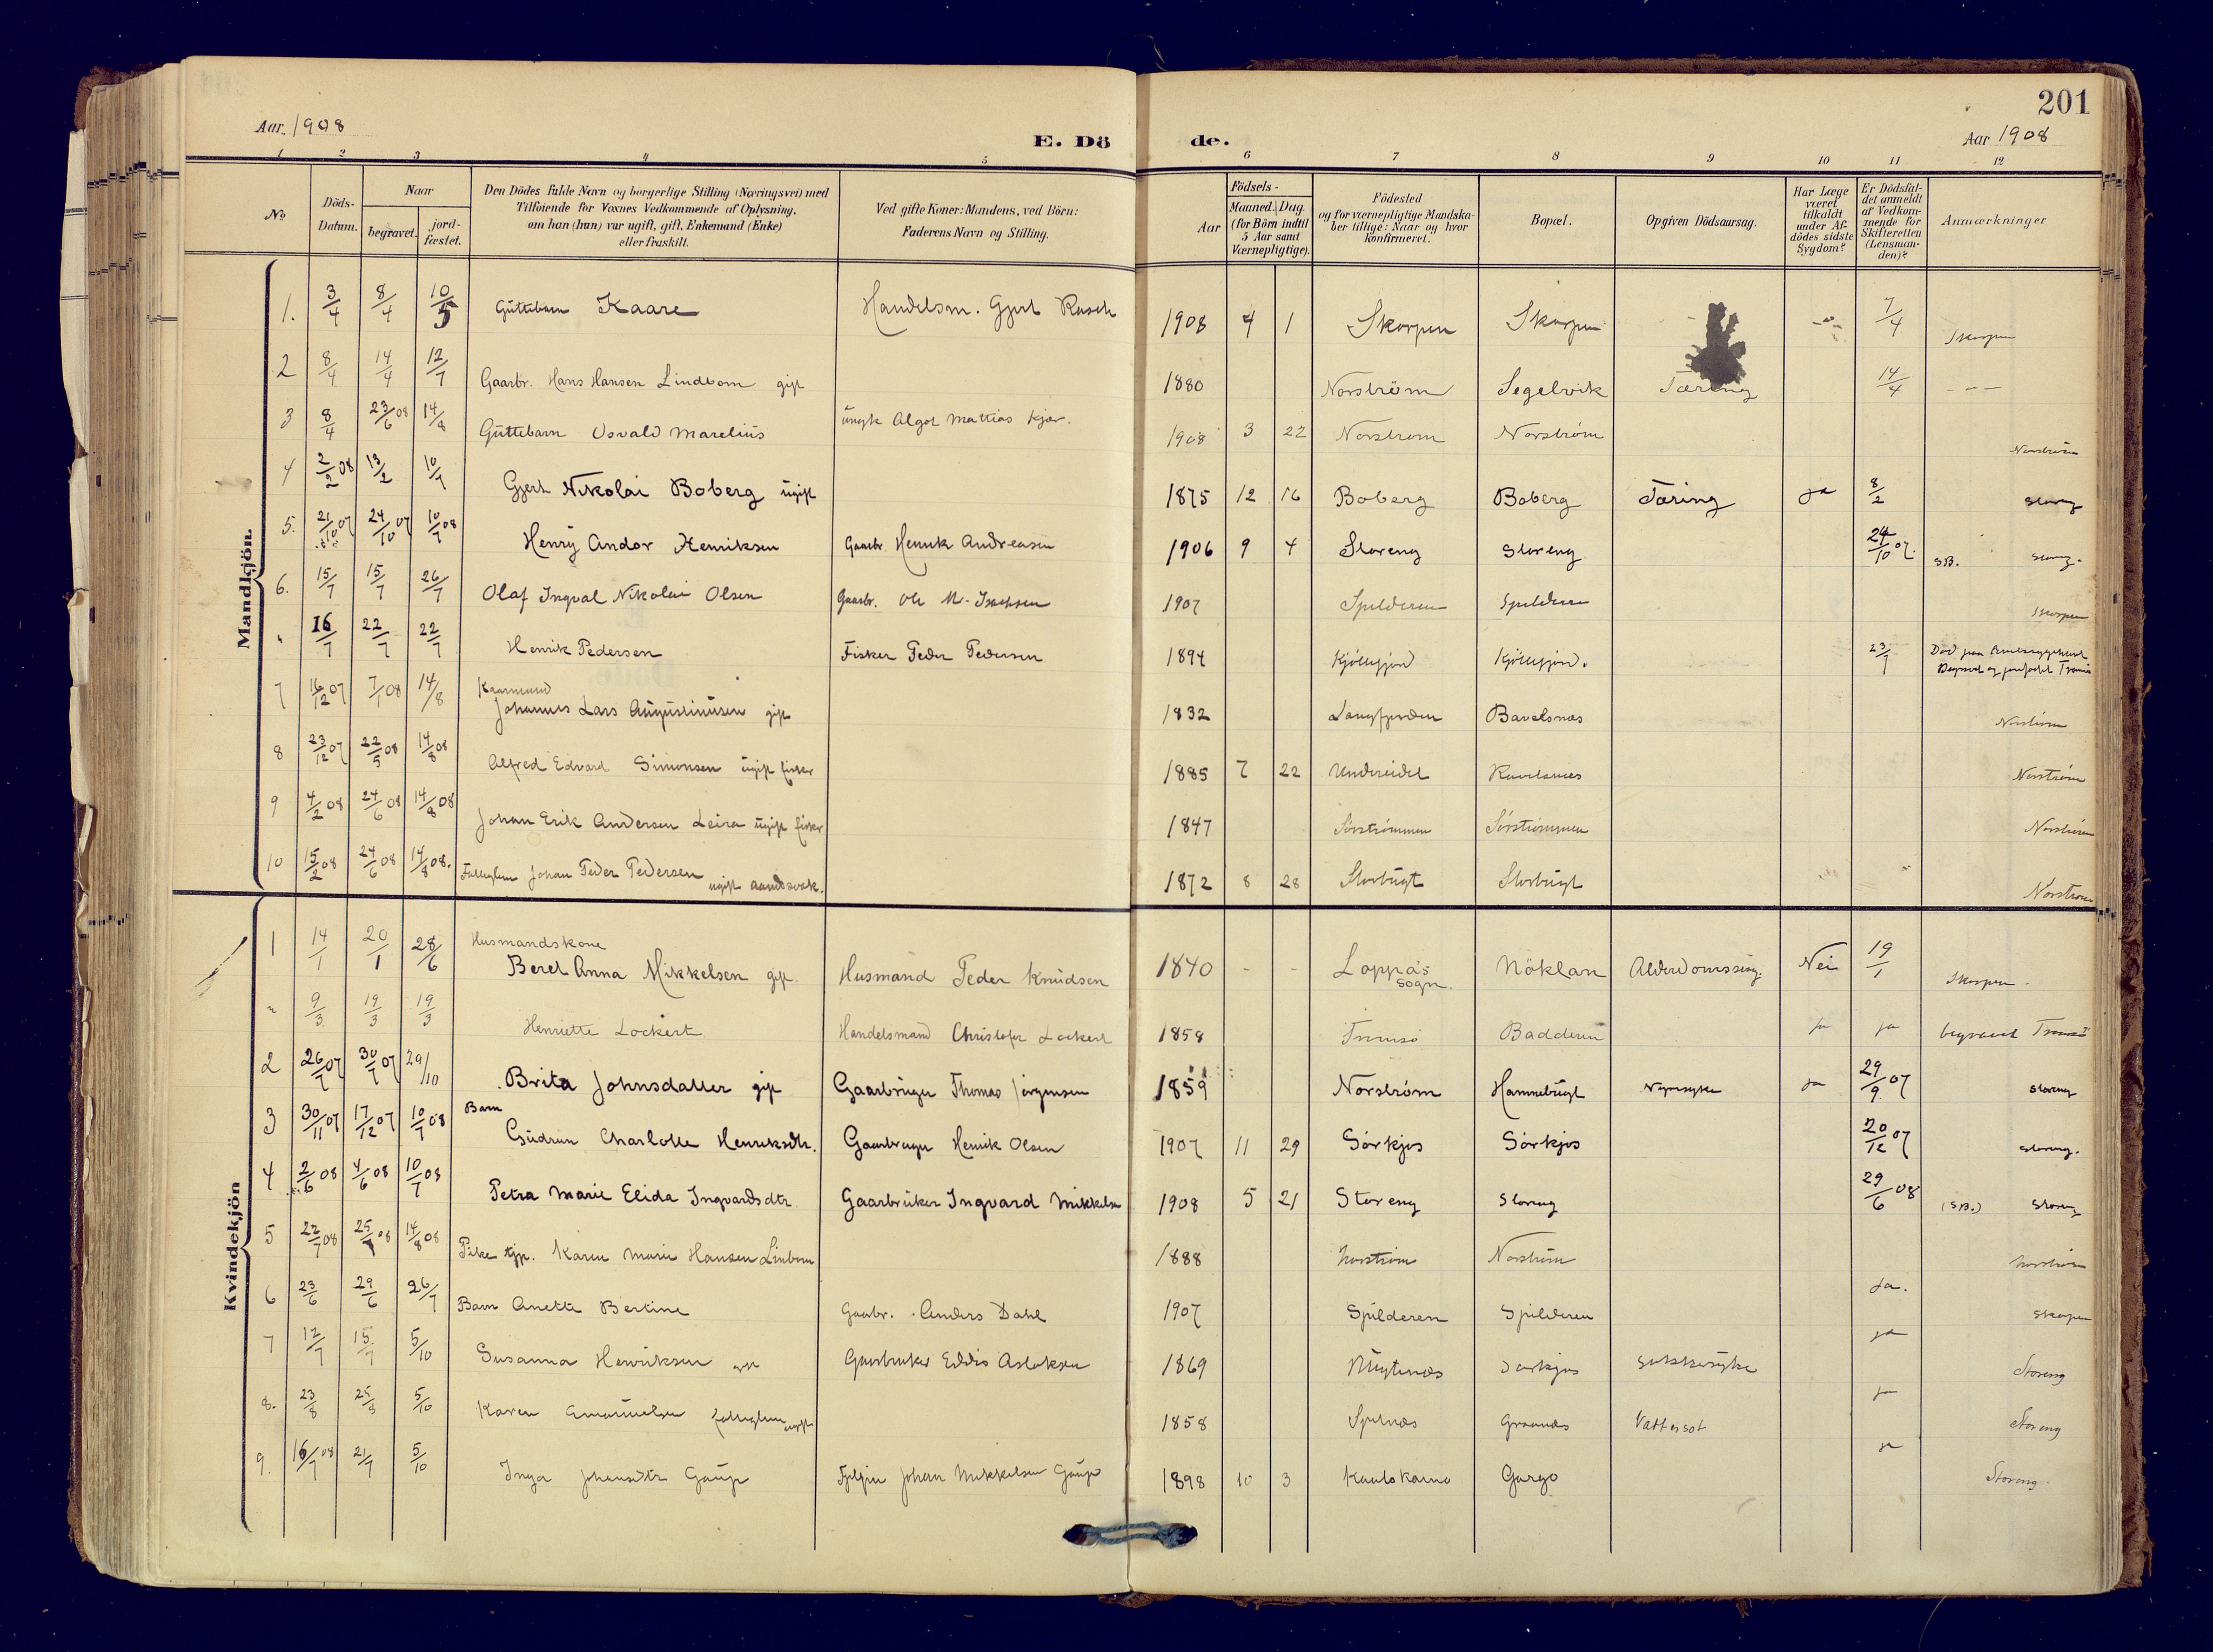 201
Aar 1908
E. Dö
de.
Aar 1908
1 2 3 4 5 6 7 8 9 10 11 12
No
Döds-Datum.
Naar
begravet.
jord-fæstet.
Den Dödes fulde Navn og borgerlige Stilling (Næringsvei) med
Tilföiende for Voxnes Vedkommende af Oplysning,
om han (hun) var ugift, gift, Enkemand (Enke)
eller fraskilt.
Ved gifte Koner: Mandens, ved Börn:
Faderens Navn og Stilling.
Födsels-
Aar
Maaned. Dag.
(for Börn indtil
5 Aar samt
Værnepligtige).
Födested
og for værnepligtige Mandska-
ber tillige: Naar og hvor
konfirmeret.
Bopæl.
Opgiven Dödsaarsag.
Har Læge
været
tilkaldt
under Af-
dödes sidste
Sygdom?
Er Dödsfal-
det anmeldt
af Vedkom-
mende for
Skifteretten
(Lensman-
den)?
Anmærkninger
Mandkjön.
1. 3/4 8/4 10/5 Guttebarn Kaare Handelsm. Gjert Rasch 1908 4 1 Skorpen Skorpen 7/4 Skorpen
2 8/4 14/4 12/7 Gaarbr. Hans Hansen Lindbom gift 1880 Norström Segelvik Tæring 14/4 - - -
3 8/4 23/6 08 14/8 Guttebarn Osvald Marelius ungk Algot Mattias Kjær. 1908 3 22 Norstrom Norström Norström
4 2/2 08 13/2 10/7 Gjert Nikolai Boberg ugift 1875 12 16 Boberg Boberg Tæring ja 8/2 Storeng
5. 21/10 07 24/10 07 10/7 08 Henry Andor Henriksen Gaarbr. Henrik Andreasen 1906 9 4 Storeng Storeng 24/10 07. S.B. Storeng.
6. 15/7 15/7 26/7 Olaf Ingval Nikolai Olsen Gaarbr. Ole M. Isachsen 1907 Spilderen Spilderen Skorpen
" 16/7 22/7 22/7 Henrik Pedersen Fisker Peder Pedersen 1894 Kjöllefjord Kjöllefjord. 23/7 Död paa
Begravet og jordfæstet Tromsö
7 16/12 07 7/1 08 14/8 Kaarmand
Johannes Lars Augustinusen gift 1832 Langfjorden Bavelsnæs Norström
8 23/12 07 22/5 08 14/8 08 Alfred Edvard Simonsen ugift fisker 1885 7 22 Undereidet Ravelsnæs Norström
9 4/2 08 24/6 08 14/8 08 Johan Erik Andersen Leira ugift fisker 1847 Sörströmmen Sörströmmen Norström
10 15/2 08 24/6 08 14/8 08. Fattiglem Johan Peder Pedersen
ugift aandssvak. 1872 8 28 Storbugt Storbugt Norström
Kvindekjön
1 14/1 20/1 28/6 Husmandskone
Beret Anna Mikkelsen gift Husmand Peder Knudsen 1840 - - Loppa's
sogn. Nöklan Alderdomssvag. Nei 19/1 Skorpen.
" 9/3 19/3 19/3 Henriette Lockert Handelsmand Christofer Lockert 1858 Tromsö Badderen ja ja begravet Tromsö
2 26/7 07 30/7 07 29/10 Brita Johnsdatter gift Gaarbruger Thomas Jörgensen 1859 Norström Hamnebugt Nyresyke ja 29/9 07 Storeng
3 30/11 07 17/12 07 10/7 08 Barn
Gudrun Charlotte Henriksdtr. Gaarbruger Henrik Olsen 1907 11 29 Sörkjos Sörkjos 20/12 07 Storeng.
4 2/6 08 4/6 08 10/7 08 Petra Marie Elida Ingvardsdtr. Gaarbruker Ingvard Mikkelsen 1908 5 21 Storeng Storeng 29/6 08 (S.B.) Storeng
5 22/7 08 25/7 08 14/8 08 Pike Karen Marie Hansen Linbom 1888 Norström Norström Norström
6 23/6 29/6 26/7 Barn Anette Bertine Gaarbr. Anders Dahl 1907 Spilderen Spilderen ja. Skorpen
7 12/7 15/7 5/10 Susanna Henriksen Gaarbruker Eddis Aslaksen 1869 Sörkjos Sukkersyke ja Storeng
8. 23/8 25/8 5/10 Karen Emanuelsen fattiglem ugift 1858 Spilnæs Graanæs Vattersot ja Storeng
9. 16/7 08 21/7 5/10 Inga Johansdtr Gaup Johan Mikkelsen Gaup 1898 10 3 Kautokeino Gargo ja Storeng.